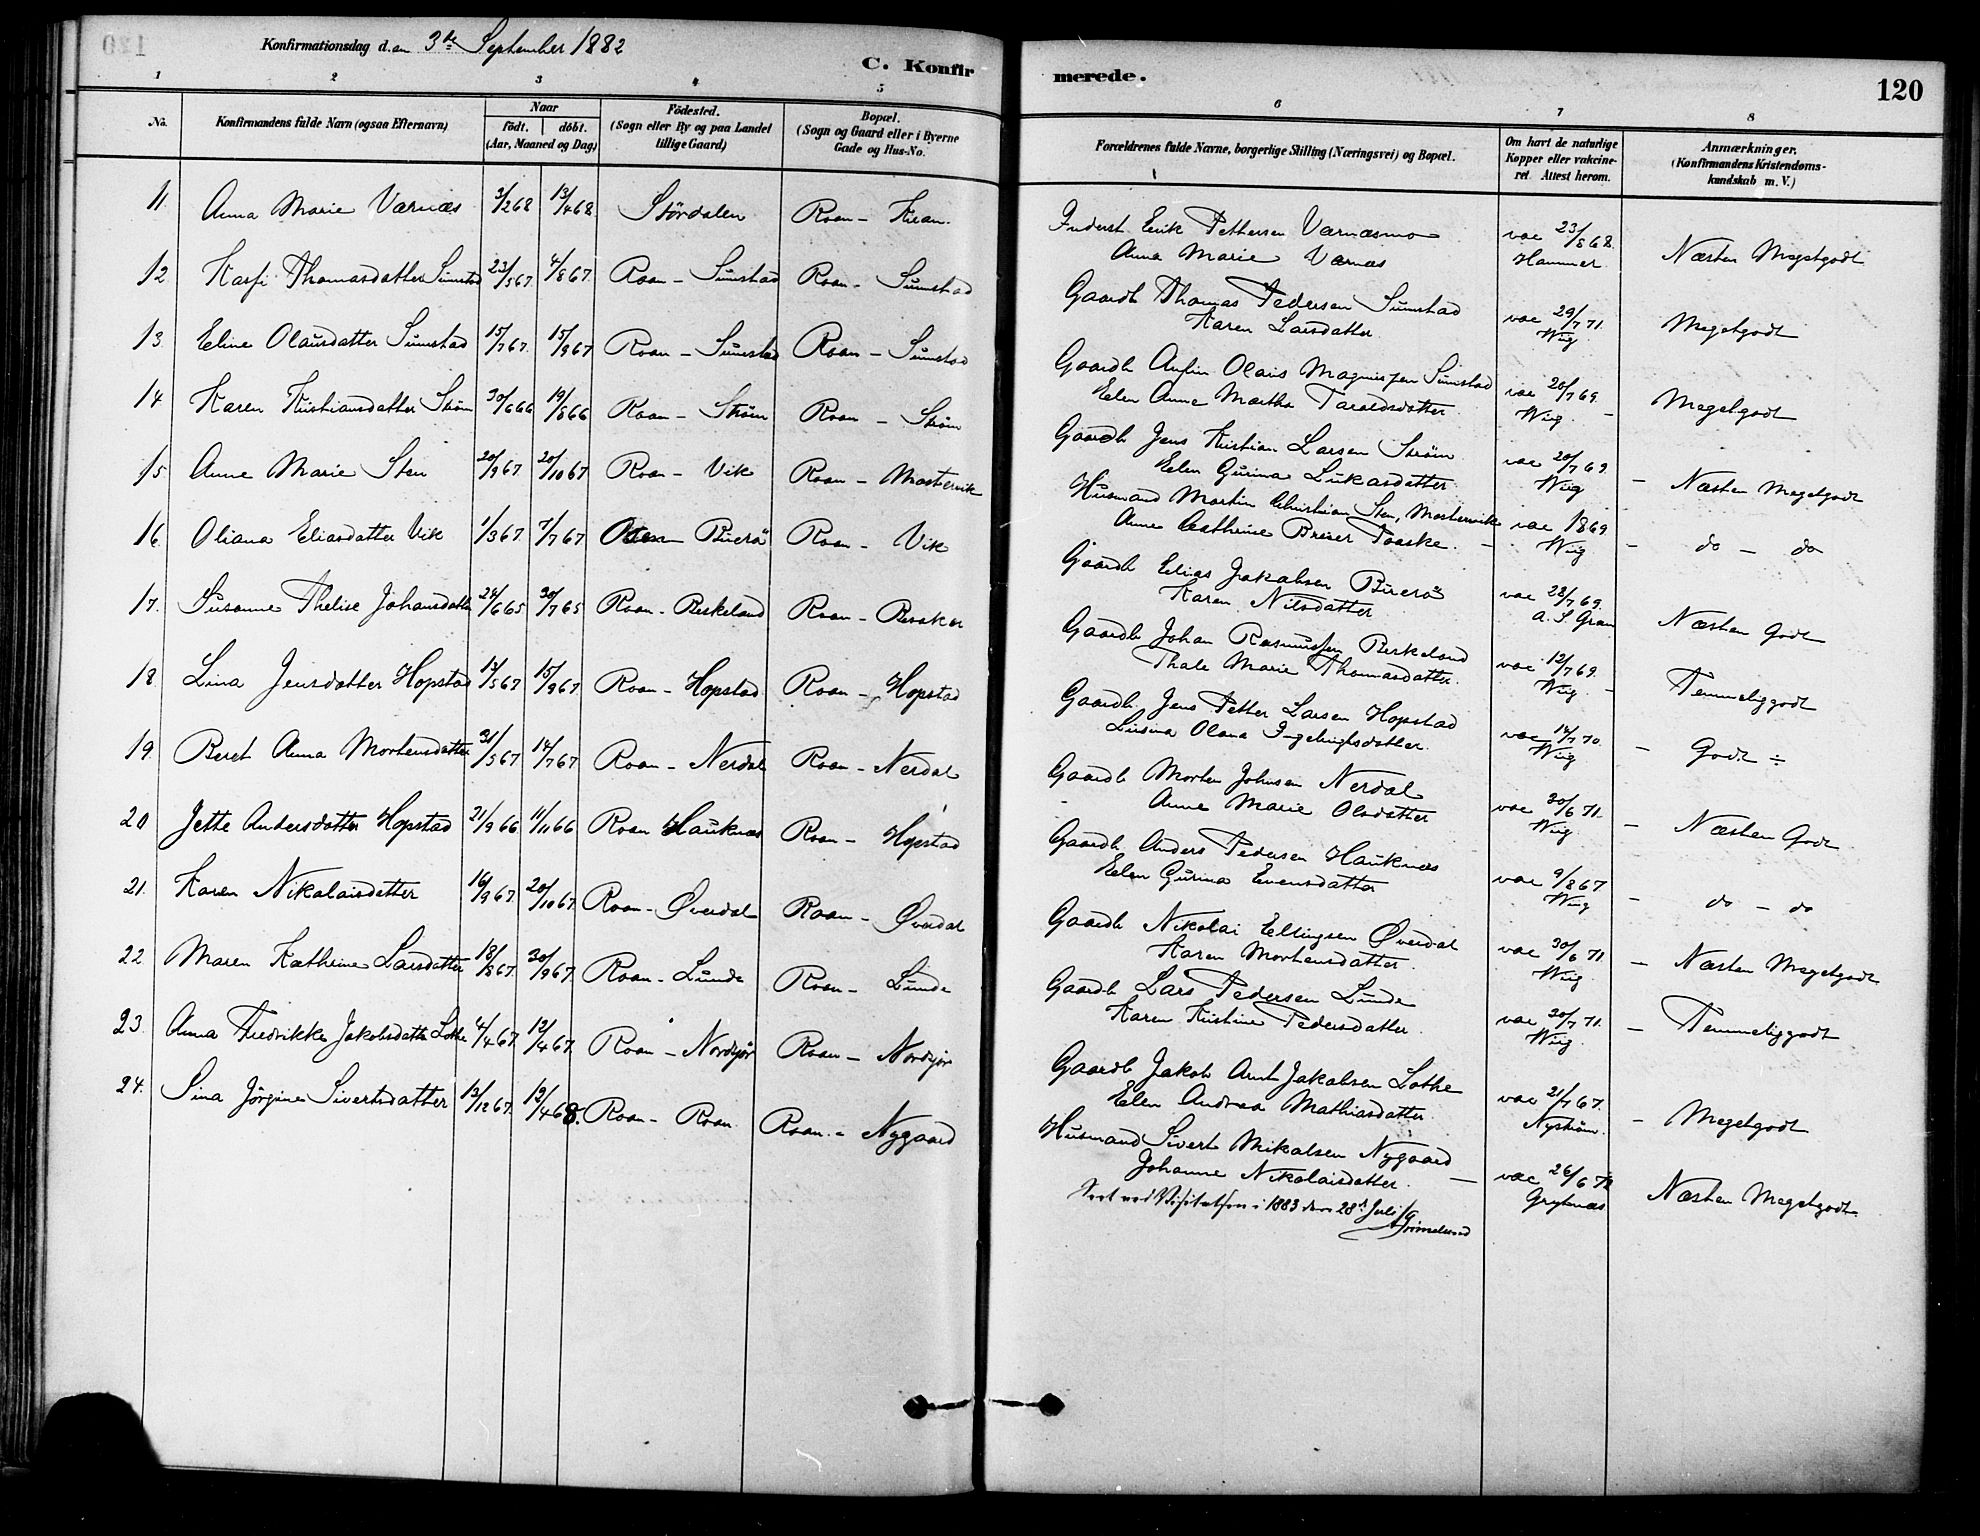 Konfirmationsdag den 3de September 1882
C. Konfirmerede.
120
1 2 3 4 5 6 7 8
No.
Konfirmandens fulde Navn (ogsaa Efternavn)
Naar
født. | døbt.
(Aar, Maaned og Dag)
Födested.
(Sogn eller By og paa Landet
tillige Gaard)
Bopæl.
(Sogn og Gaard eller i Byerne
Gade og Hus-No.
Forældrenes fulde Navne, borgerlige Stilling (Næringsvei) og Bopæl.
Om havt de naturlige
Kopper eller vakcine-
ret. Attest herom.
Anmærkninger.
(Konfirmandens Kristendoms-
kundskab m. V.)
11. Anna Marie Værnæs 3/2 68 13/4 68 Stördalen Roan - Kiran Inderst Erik Pettersen Værnæsmo vac 23/8 68. Næsten Megetgodt
Anna Marie Værnæs Hammer
12 Thomasdatter Sumstad 23/5 67. 4/8 67. Roan - Sumstad Roan - Sumstad Gaardb Thomas Pedersen Sumstad vac 29/7 71. Megetgodt
Karen Larsdatter Wiig
13. Eline Olausdatter Sumstad 15/7 67. 15/9 67 Roan - Sumstad Roan - Sumstad Gaardb Olaus Magnussen Sumstad vac 20/7 69. Megetgodt
Elen Anne Martha Taraldsdatter Wiig -
14 Karen Kristiansdatter Strøm 30/6 66 19/8 66 Roan - Strøm Roan - Strøm Gaardb Jens Kristian Larsen Strøm vac 20/7 69. - Næsten Megetgodt
Elen Gurina Lukasdatter Wiig
15 Anne Marie Sten 20/9 67 20/10 67 Roan - Vik Roan - Mastervik Husmand Martin Christian Sten, Mastervik vac 1869. - do - do
Anne Cathrine Breier Paaske. - Wiig
16. Oliana Eliasdatter Vik 1/3 67. 7/7 67 Buerö Roan - Vik Gaardb Elias Jakobsen Buerö vac 28/7 69. Næsten Godt
Karen Nilsdatter A. S. Gran
17. Susanne Thelise Johansdatter 24/6 65 30/7 65 Roan - Beskeland Roan - Besaker Gaardb Johan Rasmussen Beskeland vac 12/7 69. Temmeliggodt
Thale Marie Thomasdatter. Wiig -
18. Lina Jensdatter Hopstad 14/5 67 15/9 67. Roan - Hopstad Roan - Hopstad Gaardb Jens Petter Larsen Hopstad vac 14/7 70. - Godt ÷
Olana Ingebrigtsdatter. Wiig
19. Beret Anna Mortensdatter 31/5 67 14/7 67 Roan - Nerdal Roan - Nerdal Gaardb Morten Johnsen Nerdal vac 30/6 71. - Næsten Godt
Anne Marie Olsdatter Wiig
20 Jette Andersdatter Hopstad 21/9 66 11/11 66 Roan Hauknæs Roan - Hopstad Gaardb Anders Pedersen Hauknæs vac 9/8 67 - do - do
Elen Gurina Evensdatter Wiig
21. Karen Nikolaisdatter 16/9 67. 20/10 67. Roan - Øverdal Roan - Øverdal Gaardb Nikolai Ellingsen Øverdal vac 30/6 71. - Næsten Megetgodt
Karen Mortensdatter. Wiig
22. Maren Kathrine Larsdatter 18/8 67. 30/9 67. Roan - Lunde Roan - Lunde Gaardb Lars Pedersen Lunde vac 20/7 71. - Temmeliggodt
Karen Kristine Pedersdatter. Wiig
23. Anna Fredrikke Jakobsdatter Lothe 4/4 67. 12/4 67. Roan - Nordsjør Roan - Nordsjør Gaardb Jakob Arnt Jakobsen Lothe vac 21/7 67. - Megetgodt
Elen Andrea Mathiasdatter Nyström.
24. Sina Jörgine Sivertsdatter 13/12 67. 13/4 68. Roan - Roan Roan - Nygaard Husmand Sivert Mikalsen Nygaard vac 26/6 72 Næsten Megetgodt.
Johanne Nikolaisdatter. - Grytnæs
Seet ved Visitatsen i 1883 den 28de Juli